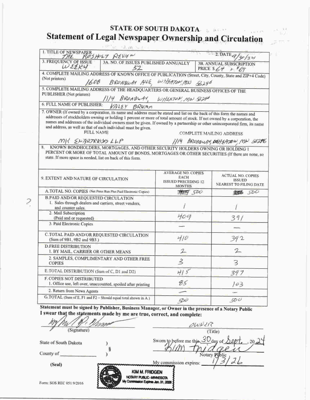 STATE OF SOUTH DAKOTA
Statement of Legal Newspaper Ownership and Circulation
1. TITLE OF NEWSPAPER
2. DATE
3. FREQUENCY OF ISSUE
WEEKLY
3A. NO. OF ISSUES PUBLISHED ANNUALLY
52
3B. ANNUAL SUBSCRIPTION PRICE
4. COMPLETE MAILING ADDRESS OF KNOWN OFFICE OF PUBLICATION (Street, City, County, State and ZIP+4 Code)
(Not printers)
BROADWAY AVE WHEATON MN
5. COMPLETE MAILING ADDRESS OF THE HEADQUARTERS OR GENERAL BUSINESS OFFICES OF THE
PUBLISHER (Not printer)
1114 BROADWAY WHEATON, MN
6. FULL NAME OF PUBLISHER:
7. OWNER (If owned by a corporation, its name and address must be stated and also immediately below that the names and
addresses of stockholders owning or holding 1 percent or more of total amount of stock. If not owned by a corporation, the
names and addresses of the individual owners must be given. If owned by a partnership or other unincorporated firm, its name
and address, as well as that of each individual must be given.
FULL NAME
COMPLETE MAILING ADDRESS
LLP
1114 BROADWAY WHEATON, MN
8. KNOWN BONDHOLDERS, MORTGAGEES, AND OTHER SECURITY HOLDERS OWNING OR HOLDING 1
PERCENT OR MORE OF TOTAL AMOUNT OF BONDS, MORTGAGES OR OTHER SECURITIES (If there are none, so
state. If more space is needed, list on back of form.
9. EXTENT AND NATURE OF CIRCULATION
AVERAGE NO. COPIES EACH ISSUED PRECEDING 12 MONTHS
ACTUAL NO. COPIES ISSUED NEAREST TO FILING DATE
A. TOTAL NO. COPIES
500
500
B. PAID AND/OR REQUESTED CIRCULATION
1. Sales through dealers and carriers, street vendors,
and counter sales.
1
1
2. Mail Subscription
(Paid and or requested)
409
391
3. Paid Electronic Copies
—
—
C. TOTAL PAID AND/OR REQUESTED CIRCULATION
(Sum of 9B1, 9B2 and 9B3.)
410
392
D. FREE DISTRIBUTION
1. BY MAIL, CARRIER OR OTHER MEANS
2
2
2. SAMPLES, COMPLIMENTARY AND OTHER FREE
COPIES
3
3
E. TOTAL DISTRIBUTION (Sum of C, D1 and D2)
415
397
F. COPIES NOT DISTRIBUTED
1. Office use, left over, unaccounted, spoiled after printing
85
103
2. Return from News Agents
—
—
G. TOTAL (Sum of E, F1 and F2 - Should equal total shown in A)
500
500
Statement must be signed by Publisher, Business Manager, or Owner in the presence of a Notary Public
I swear that the statements made by me are true, correct, and complete:
(Signature)
OWNER
(Title)
State of South Dakota )
Sworn to before me this 30 day of Sept, 2024
Kim Fridgen
Notary Public
County of )
My commission expires: 1/31/26
(Seal)
KIM M. FRIDGEN
NOTARY PUBLIC-MINNESOTA
My Commission Expires Jan. 31, 2026